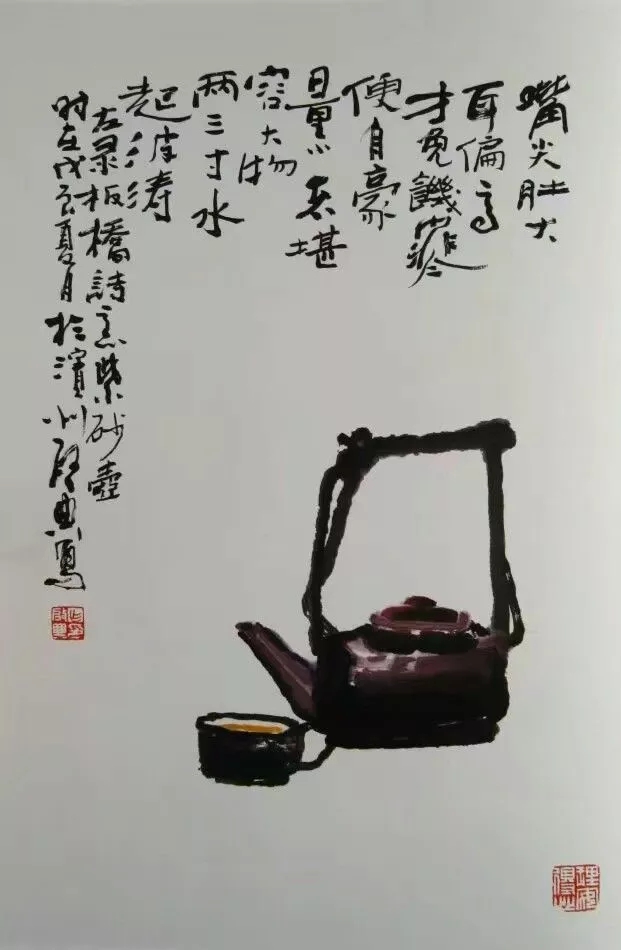 嘴尖肚大
耳偏高
才免饑寒
便自豪
量小不堪
容大物
两三寸水
起波涛
左录板橋詩意紫砂壺
时在戊夏月於濱州寫